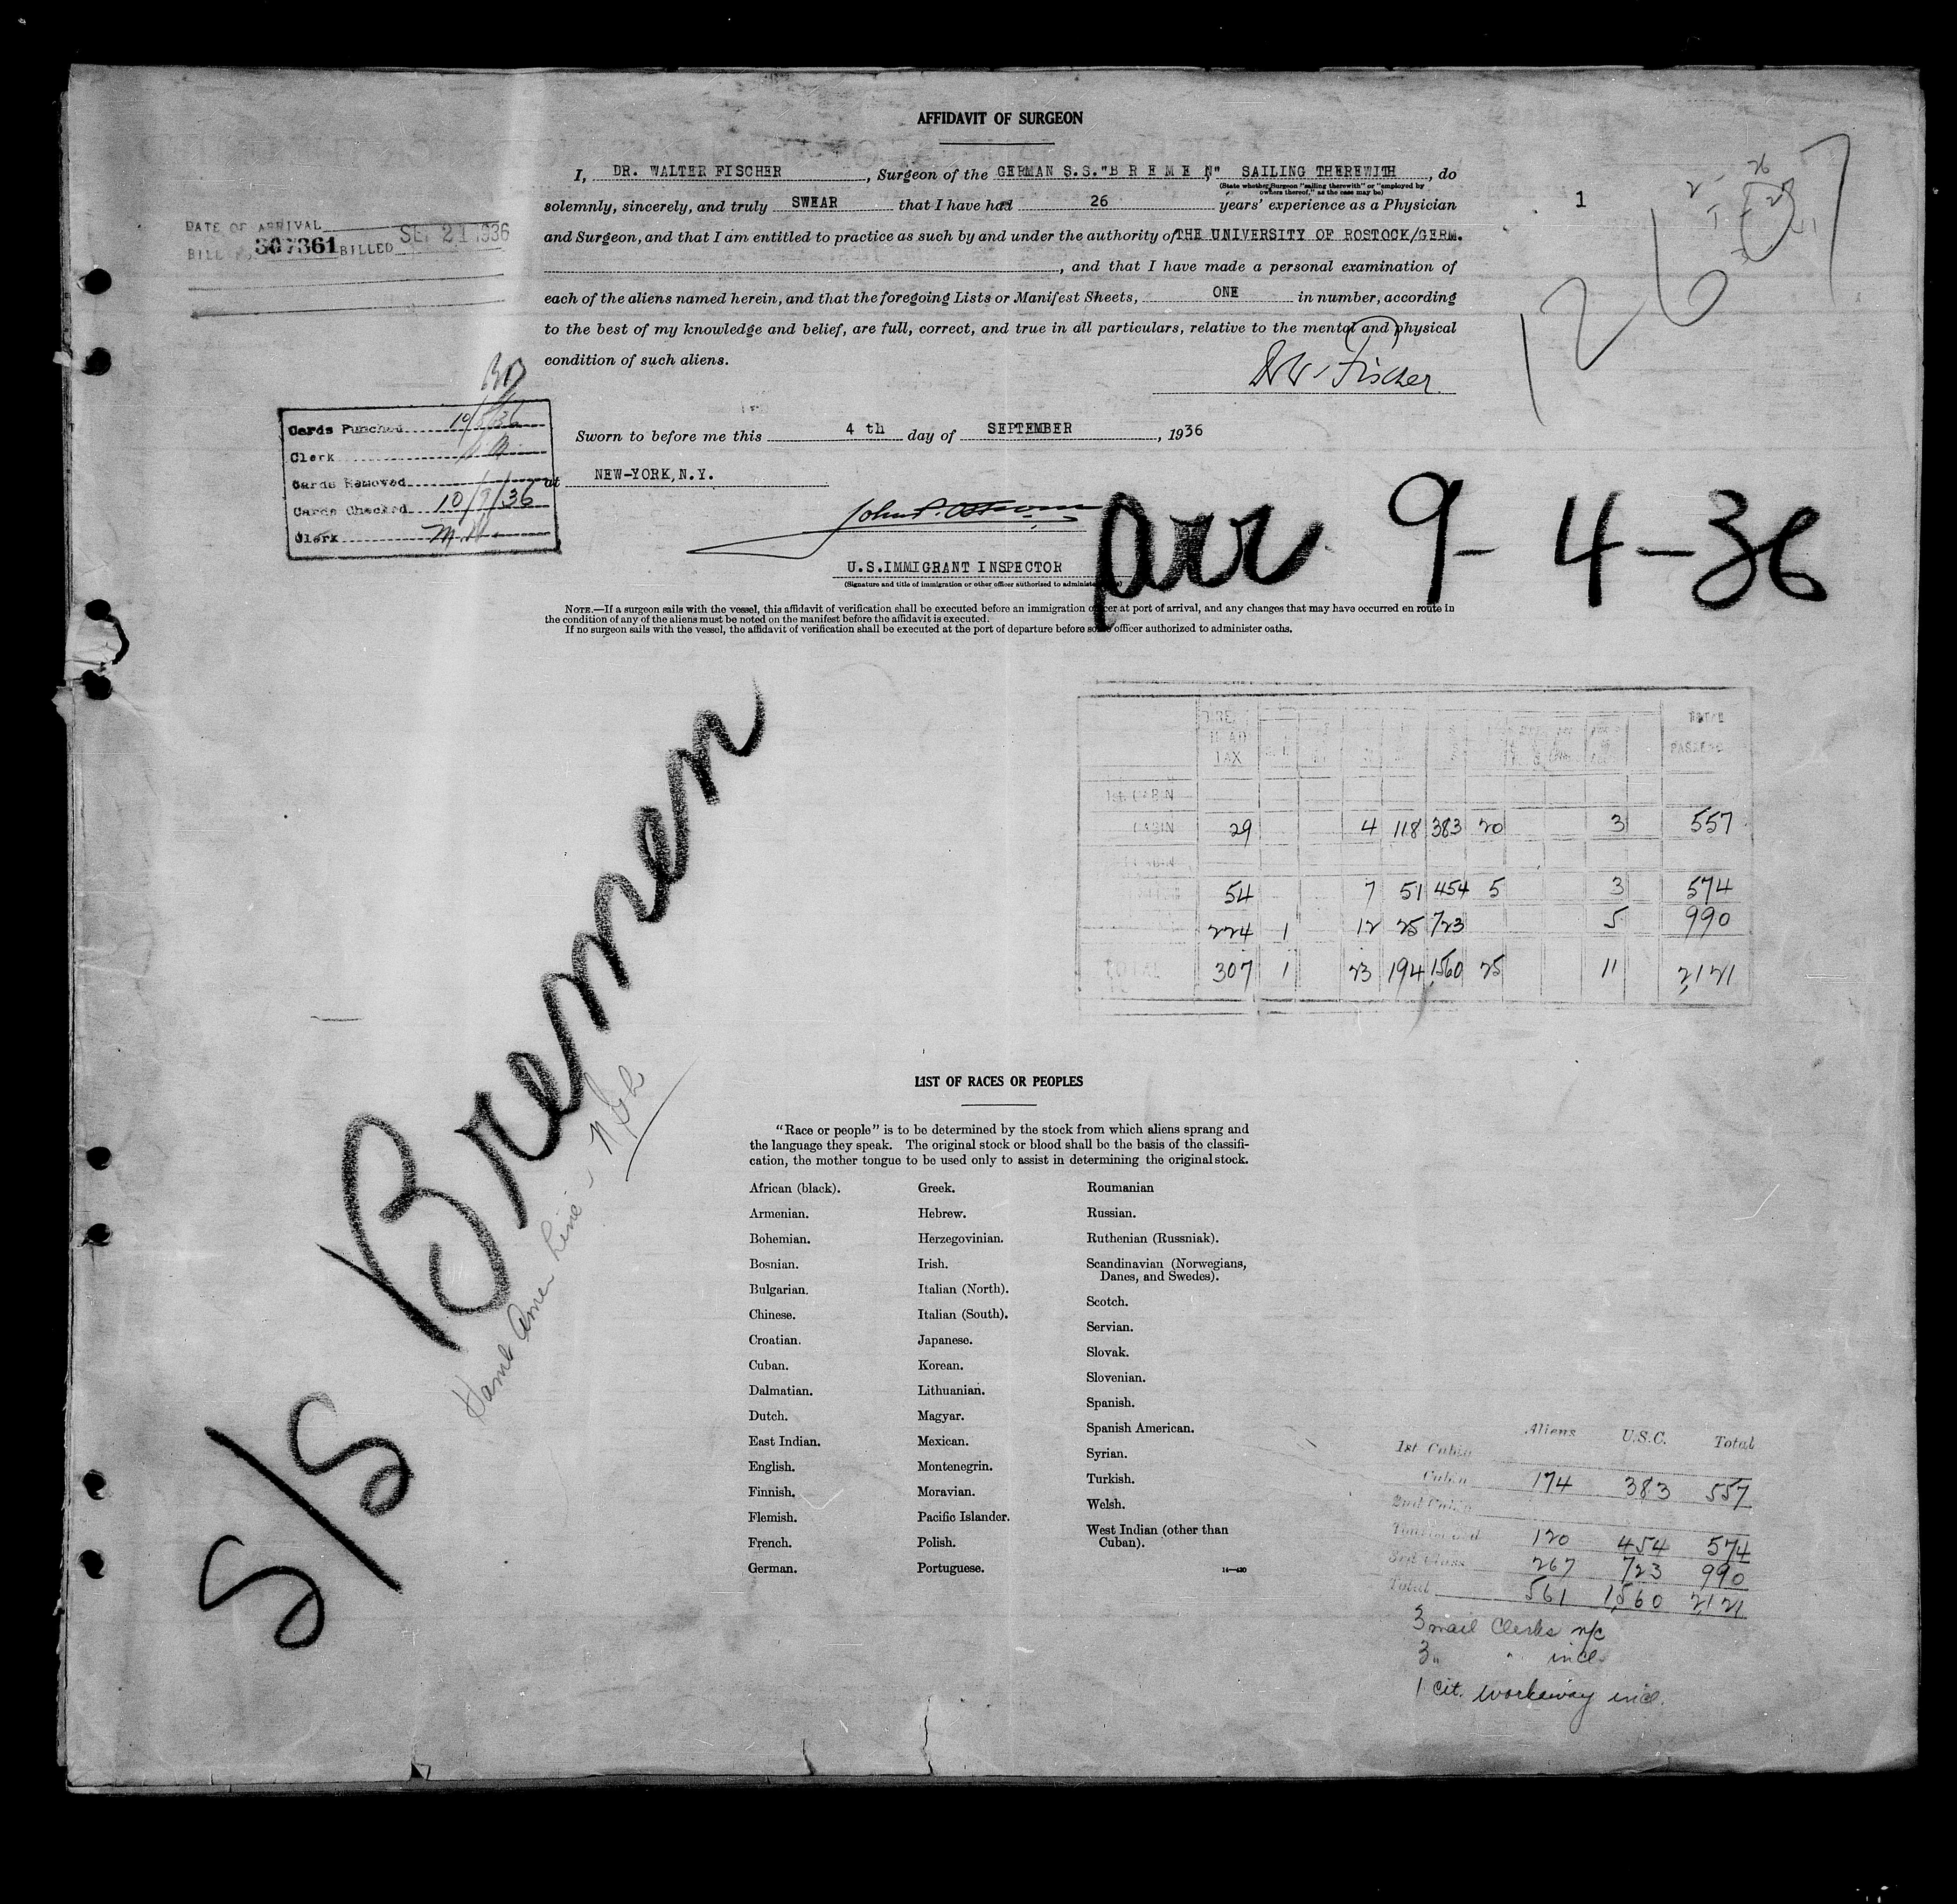 AFFIDAVIT OF SURGEON
I, DR. WALTER FISCHER, Surgeon of the GERMAN S.S."B R E M E N" SAILING THEREWITH, do
(State whether Surgeon "sailing therewith" or "employed by
owners thereof," as the case may be)
solemnly, sincerely, and truly SWEAR that I have had 26 years' experience as a Physician
1
and Surgeon, and that I am entitled to practice as such by and under the authority of THE UNIVERSITY OF ROSTOCK/GERM.
, and that I have made a personal examination of
each of the aliens named herein, and that the foregoing Lists or Manifest Sheets, ONE in number, according
to the best of my knowledge and belief, are full, correct, and true in all particulars, relative to the mental and physical
condition of such aliens.
DATE OF ARRIVAL
BILL 307361 BILLED SEP 21 1936
126
Fischer
Sworn to before me this 4 th day of SEPTEMBER, 1936
at NEW-YORK, N.Y.
Cards Punched
Clerk
Cards Removed
Cards Checked 10/9/36
Clerk M.M.
U.S.IMMIGRANT INSPECTOR
(Signature and title of immigration or other officer authorized to administer
arr 9-4-36
NOTE.—If a surgeon sails with the vessel, this affidavit of verification shall be executed before an immigration officer at port of arrival, and any changes that may have occurred en route in
the condition of any of the aliens must be noted on the manifest before the affidavit is executed.
If no surgeon sails with the vessel, the affidavit of verification shall be executed at the port of departure before some officer authorized to administer oaths.
S/S Bremen
Hamb Amer Line
HEAD TAX TOTAL PASSENG
1st CABIN
CABIN 29 4 118 383 20 3 557
54 7 51 454 5 3 574
224 1 12 25 723 5 990
TOTAL 307 1 23 194 1560 25 11 2,121
LIST OF RACES OR PEOPLES
"Race or people" is to be determined by the stock from which aliens sprang and
the language they speak. The original stock or blood shall be the basis of the classifi-
cation, the mother tongue to be used only to assist in determining the original stock.
African (black).
Armenian.
Bohemian.
Bosnian.
Bulgarian.
Chinese.
Croatian.
Cuban.
Dalmatian.
Dutch.
East Indian.
English.
Finnish.
Flemish.
French.
German.
Greek.
Hebrew.
Herzegovinian.
Irish.
Italian (North).
Italian (South).
Japanese.
Korean.
Lithuanian.
Magyar.
Mexican.
Montenegrin.
Moravian.
Pacific Islander.
Polish.
Portuguese.
Roumanian
Russian.
Ruthenian (Russniak).
Scandinavian (Norwegians,
Danes, and Swedes).
Scotch.
Servian.
Slovak.
Slovenian.
Spanish.
Spanish American.
Syrian.
Turkish.
Welsh.
West Indian (other than
Cuban).
Aliens U.S.C. Total
1st Cabin
Cabin 174 383 557
2nd Cabin
120 454 574
3rd Class 267 723 990
Total 561 1,560 2,121
3 mail Clerks n/c
3 " " incl.
1 cit. workaway incl.